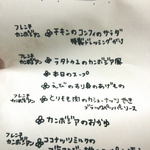 フレンチ
カンボジアン
サーモンのコンフィのサラダ
特製ドレッシングがけ
フレンチ
カンボジアン
ラタトゥユのカンボジア風
本日のスープ
カンボジアン
えびのすり身のあげもの
とりもも肉のカシューナッツやき
ブラックペッパーソース
カンボジアのおかゆ
フレンチ
カンボジアン
ココナッツミルクの